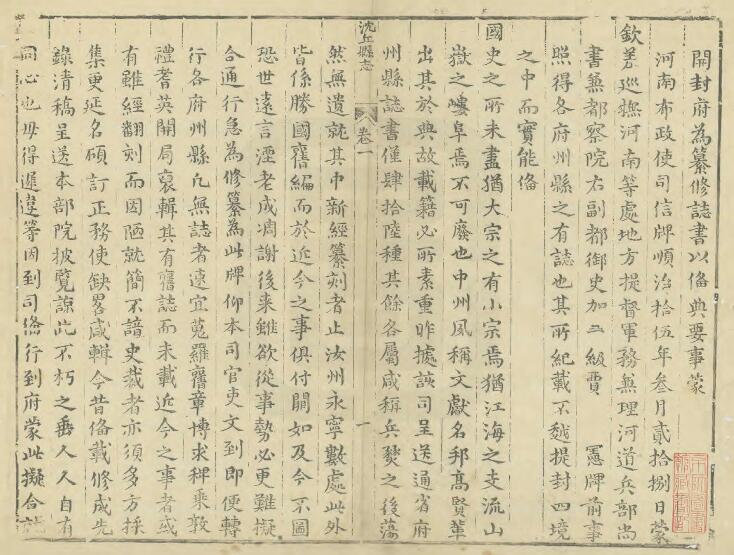 開封府為纂修誌書以俻典要事蒙
河南布政使司信牌順治拾伍年叁月貳拾捌日蒙
欽差巡撫河南等處地方提督軍務無理河道兵部尚
書蕪都察院右副都御史加二級賈　憲牌前事
照得各府州縣之有誌也其所紀載不越提封四境
之中而實能俻
國史之所未盡猶大宗之有小宗焉猶江海之支流山
嶽之嶁阜焉不可廢也中州風稱文獻名邦髙賢輩
出其於典故載籍必所素重昨據該司呈送通省府
沈丘縣志
卷一
一
州縣誌書僅肆拾陸種其餘各屬咸稱兵燹之後蕩
然無遺就其中新經纂刻者止汝州永寧數處此外
皆係勝國舊編而於近今之事俱付闕如及今不圖
恐世遠言湮老成凋謝後来雖欲從事勢必更難擬
合通行急為修纂為此牌仰本司官吏文到即便轉
行各府州縣凢無誌者速宜蒐羅舊章博求稗乘敦
禮耆英開局裒輯其有舊誌而未載近今之事者或
有雖經翻刻而因陋就簡不諳史裁者亦須多方採
集更延名碩訂正務使缺畧咸輯今昔俻載修成先
錄清稿呈送本部院披覽諒此不朽之垂人人自有
同心也毋得遲違等因到司俻行到府蒙此擬合就